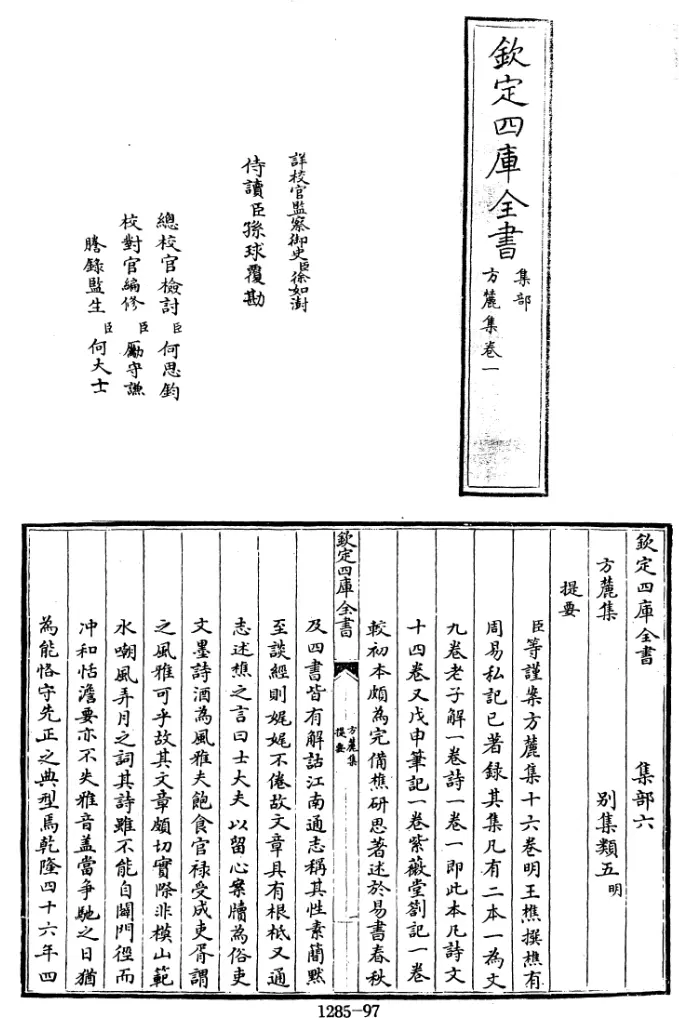 欽定四庫全書
集部
方麓集卷一
詳校官監察御史臣徐如澍
侍讀臣孫球覆勘
總校官檢討臣何思鈞
校對官編修臣勵守謙
謄錄監生臣何大士
欽定四庫全書 集部六
方麓集 別集類五明
提要
臣等謹案方麓集十六卷明王樵撰樵有
周易私記已著録其集凡有二本一為文
九卷老子解一卷詩一卷一即此本凡詩文
十四卷又戊申筆記一卷紫薇堂劄記一卷
較初本頗為完備樵研思著述於易書春秋
欽定四庫全書
方麓集
提要
及四書皆有解詁江南通志稱其性素簡黙
至談經則娓娓不倦故文章具有根柢又通
志述樵之言曰士大夫以留心案牘為俗吏
文墨詩酒為風雅夫飽食官禄受成吏胥謂
之風雅可乎故其文章頗切實際非模山範
水嘲風弄月之詞其詩雖不能自闢門徑而
冲和恬澹要亦不失雅音盖當爭馳之日猶
為能恪守先正之典型焉乾隆四十六年四
1285-97